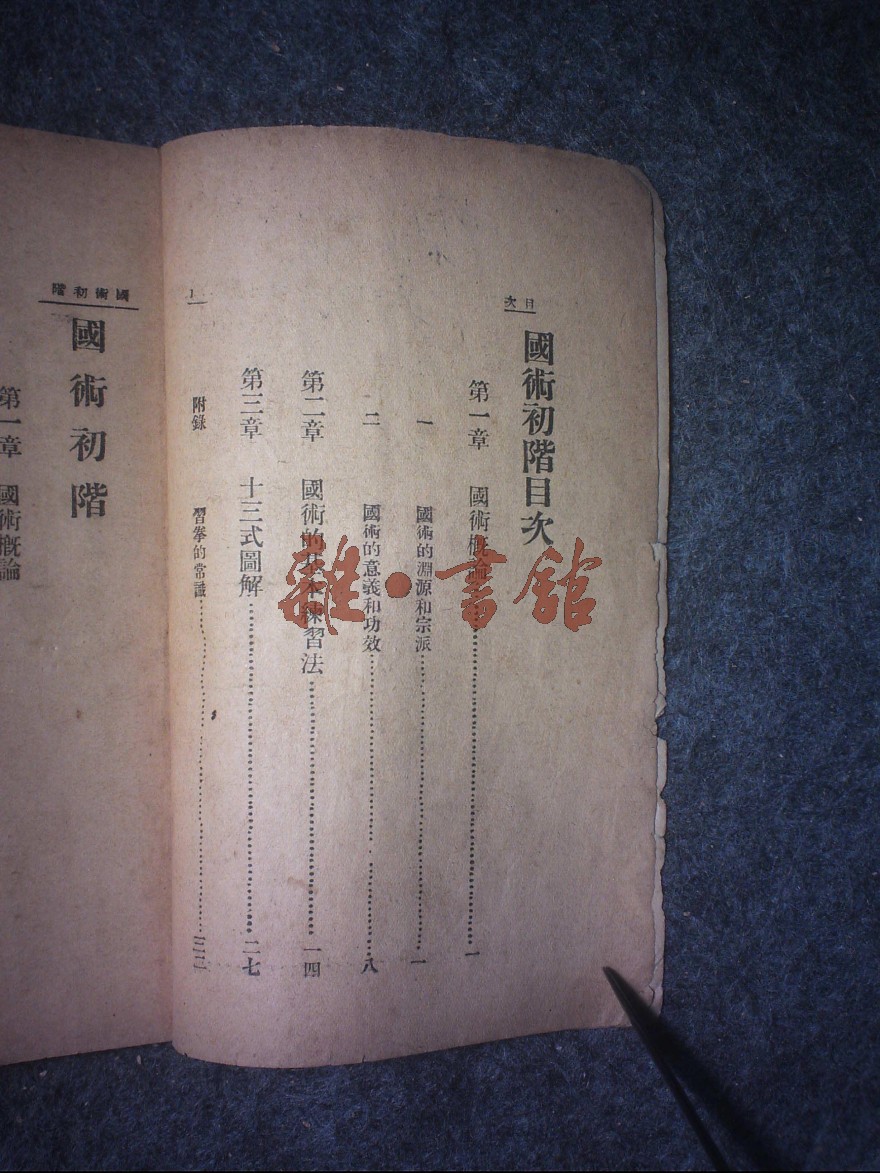 目次
國術初階目次
第一章　國術概論…一
一　國術的淵源和宗派…一
二　國術的意義和功效…八
第二章　國術的基本練習法…一四
第三章　十三式圖解…二七
附錄　習拳的常識…
一
國術初階
國術初階
第一章　國術概論
雜·書館